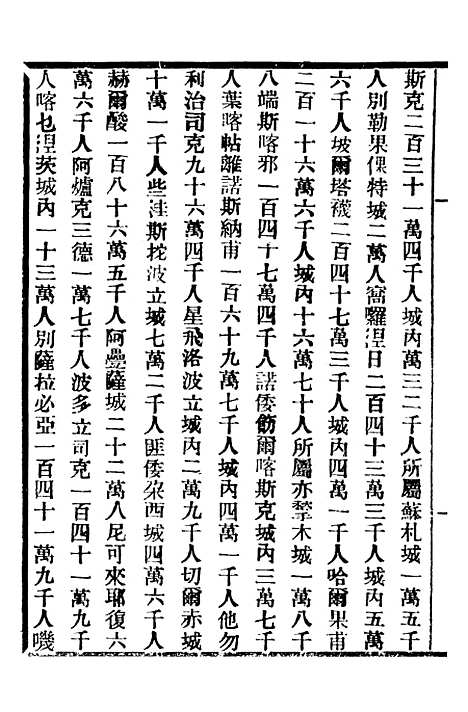 斯克二百三十一萬四千人城內萬三二千人所屬蘇札城一萬五千
人別勒果倮特城二萬人窩羅涅日二百四十三萬三千人城內五萬
六千人坡爾塔襪二百四十七萬三千人城內四萬一千人哈爾果甫
二百一十六萬六千人城內十六萬七十人所屬亦鼕木城一萬八千
八端斯喀邪一百四十七萬四千人諾倭篰爾喀斯克城內三萬七千
人葉喀帖離諾斯納甫一百六十九萬七千人城內四萬一千人他勿
利治司克九十六萬四千人星飛洛波立城內二萬九千人切爾赤城
十萬一千人些洼斯拕波立城七萬二千人匪倭朶西城四萬六千人
赫爾酸一百八十六萬五千人阿疊薩城二十二萬八尼可來耶復六
萬六千人阿爐克三德一萬七千人波多立司克一百四十一萬九千
人喀乜涅茨城內一十三萬人別薩拉必亞一百四十一萬九千人嘰